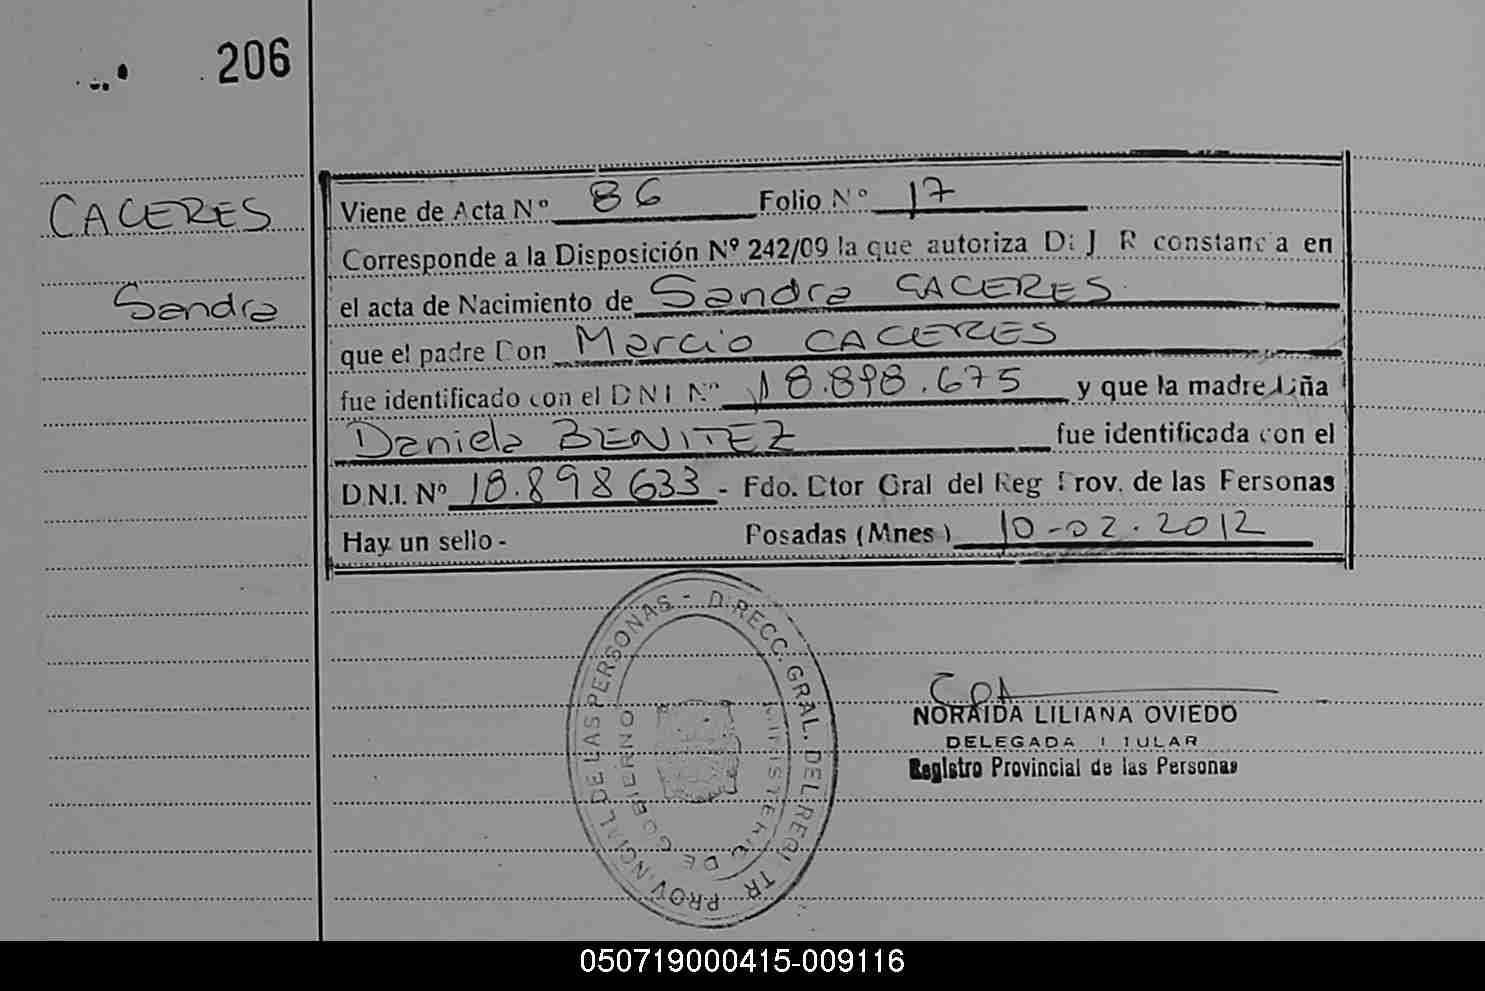 206
CACERES
Sandra
Viene de Acta Nº 86 Folio Nº 17
Corresponde a la Disposición Nº 242/09 la que autoriza D: J R constancia en
el acta de Nacimiento de Sandra CACERES
que el padre Don Marcio CACERES
fue identificado con el D N I Nº 18.898.675 y que la madre Dña
Daniela BENITEZ fue identificada con el
D.N.I. Nº 18.898 633 - Fdo. Dtor Gral del Reg Prov. de las Personas
Hay un sello - Posadas (Mnes) 10-02-2012
PROVINCIAL DE LAS PERSONAS - DIRECC. GRAL. DEL REGISTR
MINISTERIO DE GOBIERNO
NORAIDA LILIANA OVIEDO
DELEGADA TITULAR
Registro Provincial de las Personas
050719000415-009116